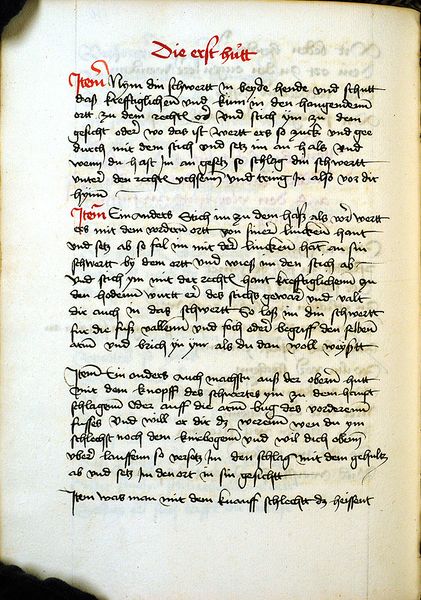 Die erst hůtt
Item Nym din schwertt in beyde hende vnd schutt
das krefftiglichen vnd kum in den hangendenn
ortt zu dem rechten vnd stich ym zu dem
gesicht oder wo das ist wertt ers so zuck vnd gee
durch mit dem stich vnd setz im an hals vnd
wenn du hast im an gesetz so schlag din schwertt
unter den rechten vchsenn vnd tring in also vor dir
hynn
Item Ein anders Stich im zu dem halß als vor wertt
ers mit dem vordern ortt von siner lincken hant
vnd setz ab so fal im mit der lincken hat an sin
schwertt by dem ortt vnd wiess im den stich ab
vnd stich ym mit der rechten hant krefftiglichenn zu
den hodenn wirtt er des stichs gewar vnd valt
die auch in das schwertt So loß im din schwertt
für die fuß vallenn vnd fich oder begriff den selben
arm vnd brich yn ym als du dan woll weystt
Item Ein anders auch machstu auß der obern hutt
mit dem knopff des schwertes ym zu dem haupt
schlagenn Oder auff die arm bug des vorderenn
fusses vnd will er dir dz werenn wen du ym
schlechst noch dem kniebogenn vnd wil dich obenn
vber lauffenn so versetz im den schlag mit dem gehultz
ab vnd setz im den ort in sin gesichtt
Item was man mit dem knauff schlechtt dz heissent